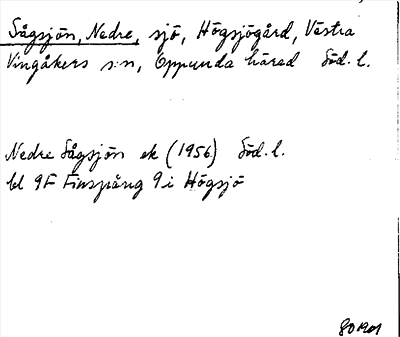 Sågsjön, Nedre, sjö, Högsjögård, Västra
Vingåkers s:n, Oppunda härad Söd. l.
Nedre Sågsjön ek (1956) Söd. l.
bl 9F Finspång 9i Högsjö